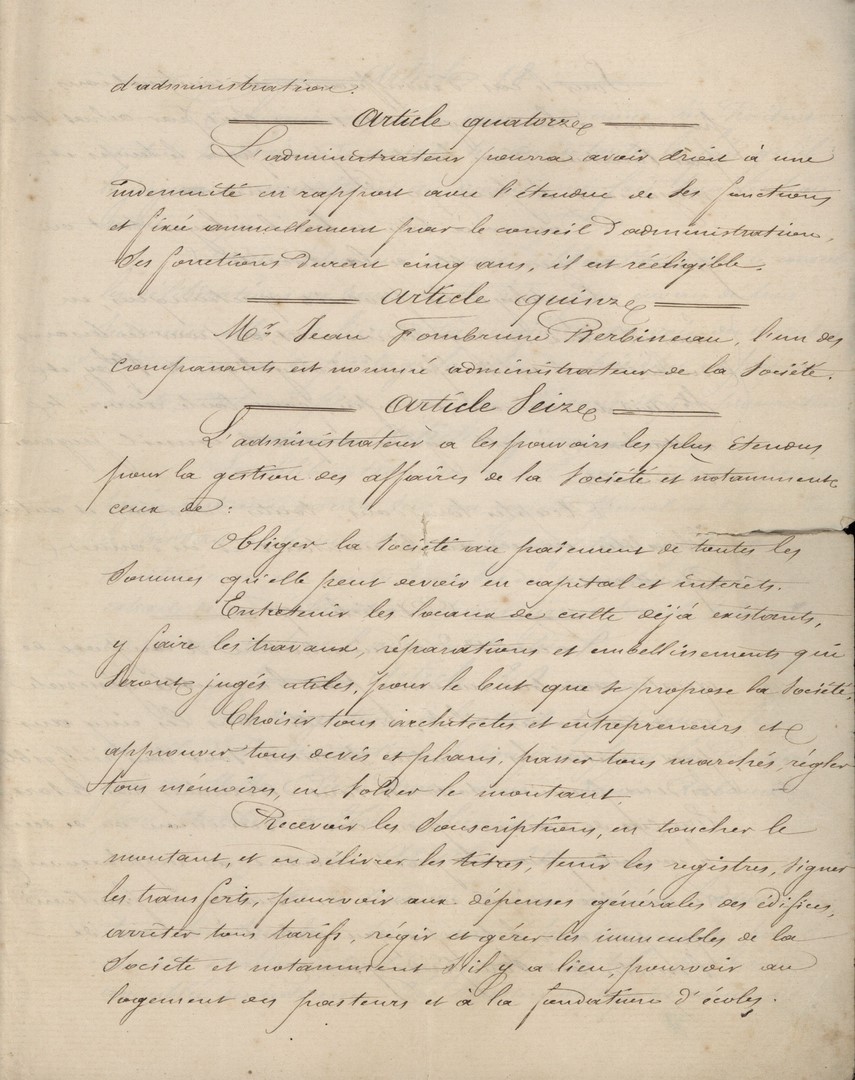 d'administration.
Article quatorze
L'administrateur pourra avoir droit à une
indemnité en rapport avec l'étendue de ses fonctions
et fixée annuellement par le conseil d'administration,
Ses fonctions durent cinq ans, il est rééligible.
Article quinze
Mr. Jean Fombrune Berbineau, l'un des
comparants est nommé administrateur de la Société.
Article Seize
L'administrateur a les pouvoirs les plus étendus
pour la gestion des affaires de la Société et notamment
ceux de :
Obliger la Société au paiement de toutes les
Sommes qu'elle peut devoir en capital et intérêts.
Entretenir les locaux de culte déjà existants,
y faire les travaux, réparations et embellissements qui
Seront jugés utiles, pour le but que se propose la Société,
Choisir tous architectes et entrepreneurs et
approuver tous devis et plans, passer tous marchés, régler
tous mémoires, en Solder le montant.
Recevoir les Souscriptions, en toucher le
montant, et en délivrer les titres, tenir les registres, Signer
les transferts, pourvoir aux dépenses générales des édifices,
arrêter tous tarifs, régir et gérer les immeubles de la
Société et notamment S'il y a lieu, pourvoir au
logement des pasteurs et à la fondation d'écoles.